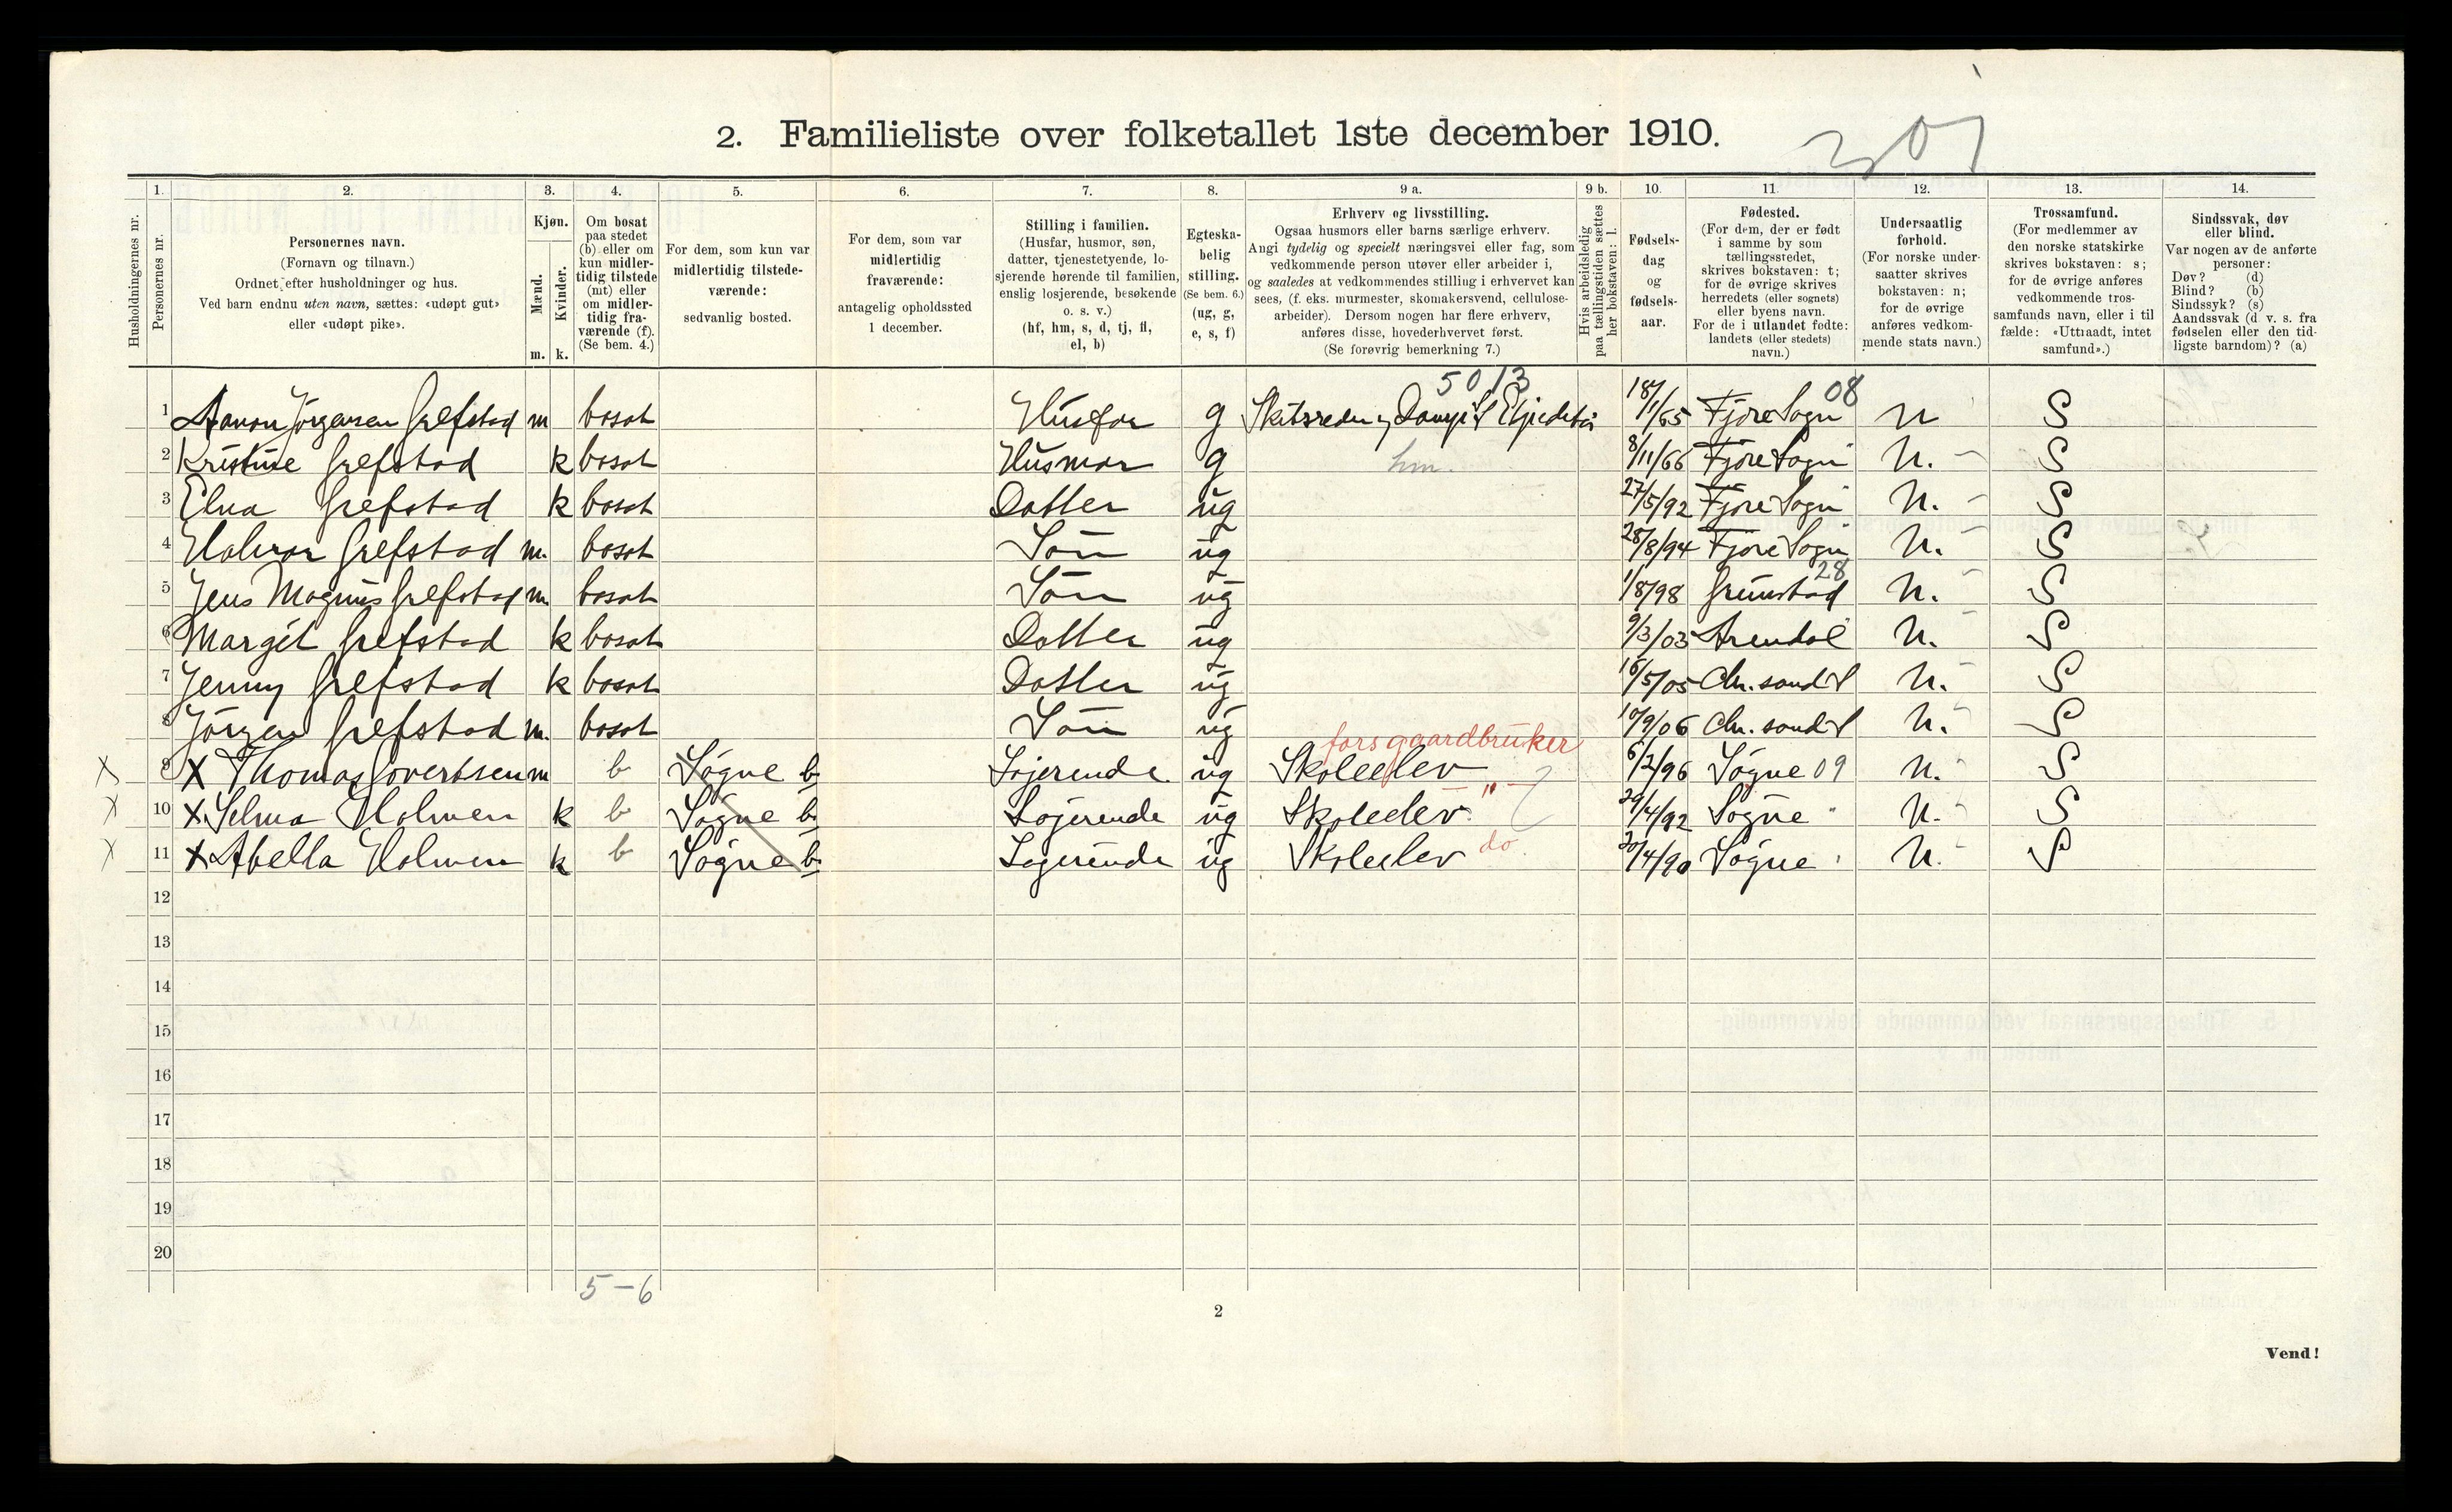 2. Familieliste over folketallet 1ste december 1910.
301
Husholdningernes nr.
1. Personernes nr.
2. Personernes navn.
(Fornavn og tilnavn.)
Ordnet efter husholdninger og hus.
Ved barn endnu uten navn, sættes: «udøpt gut»
eller «udøpt pike».
3. Kjøn.
Mænd. m.
Kvinder. k.
4. Om bosat
paa stedet
(b) eller om
kun midler-
tidig tilstede
(mt) eller
om midler-
tidig fra-
værende (f).
(Se bem. 4.)
5. For dem, som kun var
midlertidig tilstede-
værende:
sedvanlig bosted.
6. For dem, som var
midlertidig
fraværende:
antagelig opholdssted
1 december.
7. Stilling i familien.
(Husfar, husmor, søn,
datter, tjenestetyende, lo-
sjerende hørende til familien,
enslig losjerende, besøkende
o. s. v.)
(hf, hm, s, d, tj, fl,
el, b)
8. Egteska-
belig
stilling.
(Se bem. 6.)
(ug, g,
e, s, f)
9 a. Erhverv og livsstilling.
Ogsaa husmors eller barns særlige erhverv.
Angi tydelig og specielt næringsvei eller fag, som
vedkommende person utøver eller arbeider i,
og saaledes at vedkommendes stilling i erhvervet kan
sees, (f. eks. murmester, skomakersvend, cellulose-
arbeider). Dersom nogen har flere erhverv,
anføres disse, hovederhvervet først.
(Se forøvrig bemerkning 7.)
9 b. Hvis arbeidsledig
paa tællingstiden sættes
her bokstaven: l.
10. Fødsels-
dag
og
fødsels-
aar.
11. Fødested.
(For dem, der er født
i samme by som
tællingsstedet,
skrives bokstaven: t;
for de øvrige skrives
herredets (eller sognets)
eller byens navn.
For de i utlandet fødte:
landets (eller stedets)
navn.)
12. Undersaatlig
forhold.
(For norske under-
saatter skrives
bokstaven: n;
for de øvrige
anføres vedkom-
mende stats navn.)
13. Trossamfund.
(For medlemmer av
den norske statskirke
skrives bokstaven: s;
for de øvrige anføres
vedkommende tros-
samfunds navn, eller i til
fælde: «Uttraadt, intet
samfund».)
14. Sindssvak, døv
eller blind.
Var nogen av de anførte
personer:
Døv? (d)
Blind? (b)
Sindssyk? (s)
Aandssvak (d. v. s. fra
fødselen eller den tid-
ligste barndom)? (a)
5013 08
1 Aanon Jörgensen Grefstad m bosat Husfar g Skibsreder og Dampsk Expeditør 18/1/65 Fjære Sogn n S
2 Kristine Grefstad k bosat Husmor g hm. 8/11/66 Fjære Sogn n. S
3 Elna Grefstad k bosat Datter ug 27/5/92 Fjære Sogn n. S
4 Halvor Grefstad m. bosat Sön ug 28/8/94 Fjære Sogn n. S
28
5 Jens Magnus Grefstad m bosat Sön ug 1/8/98 Grimstad n. S
6 Margit Grefstad k bosat Datter ug 9/3/03 Arendal n. S
7 Jenny Grefstad k bosat Datter ug 16/5/05 Chr.sand S n. S
8 Jörgen Grefstad m. bosat Sön ug 10/9/06 Chr.sand S n. S
fars gaardbruker
X 9 X Thomas Govertsen m b Søgne b Lojerende ug Skoleelev 6/2/96 Søgne 09 n. S
X 10 X Selma Holmen k b Søgne b Lojerende ug Skoleelev " 29/4/92 Søgne " n. S
X 11 X Abella Holmen k b Søgne b Logerende ug Skoleelev do 20/4/90 Søgne " n. S
12
13
14
15
16
17
18
19
20
5-6
2
Vend!